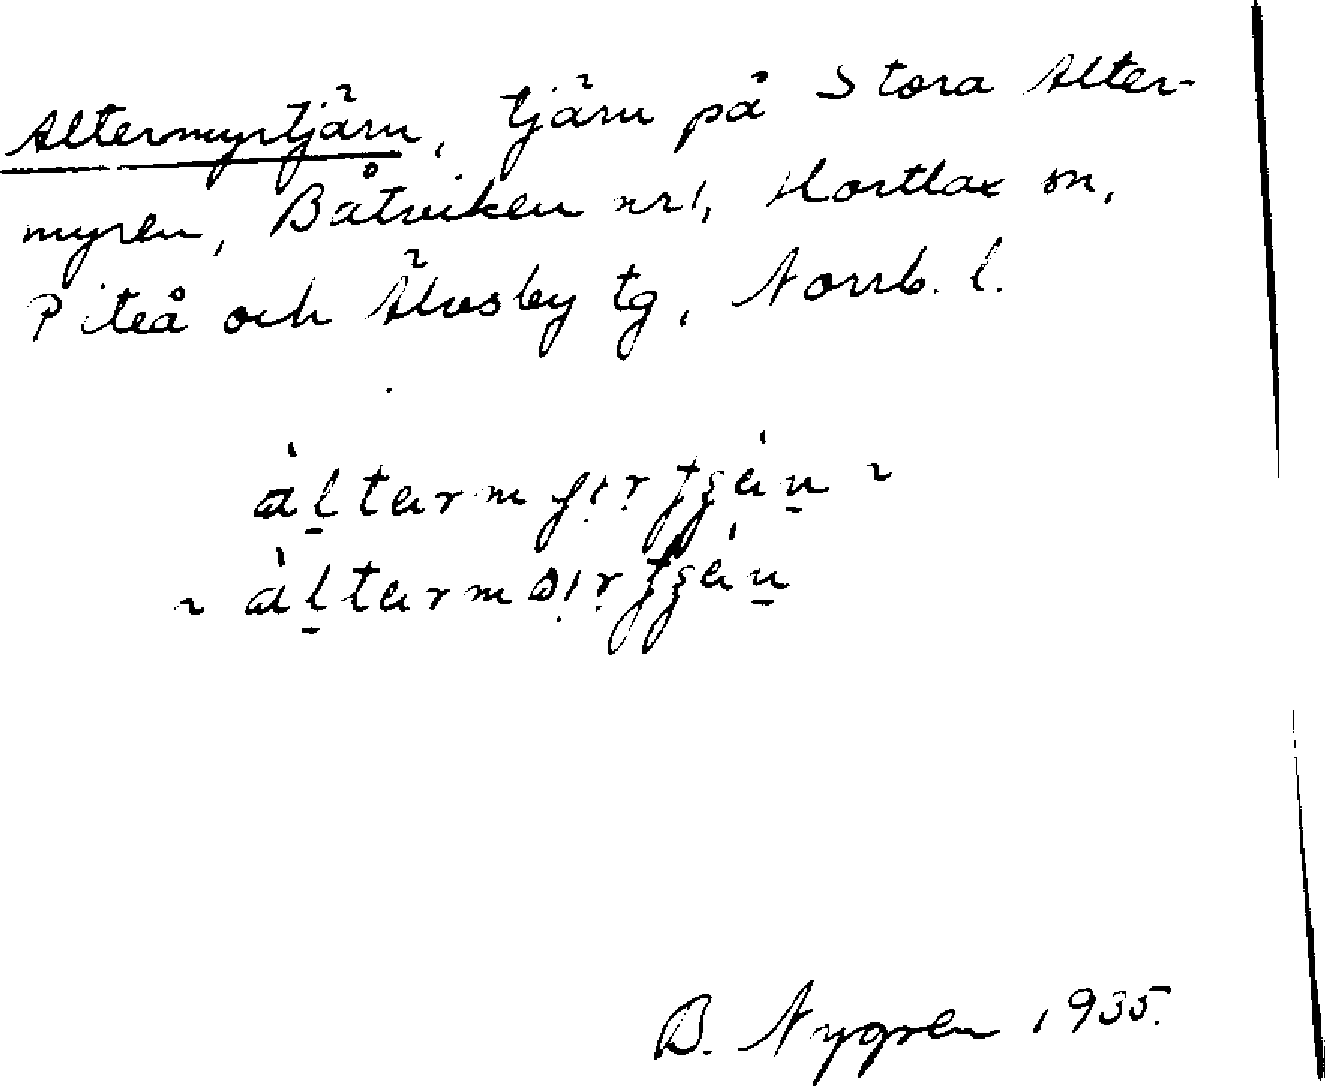 Altermyrtjärn, tjärn på Stora Alter-
myren, Båtviken nr 1, Hortlax sn,
Piteå och Älvsby tg, Norrb. l.
B. Nygren 1935.